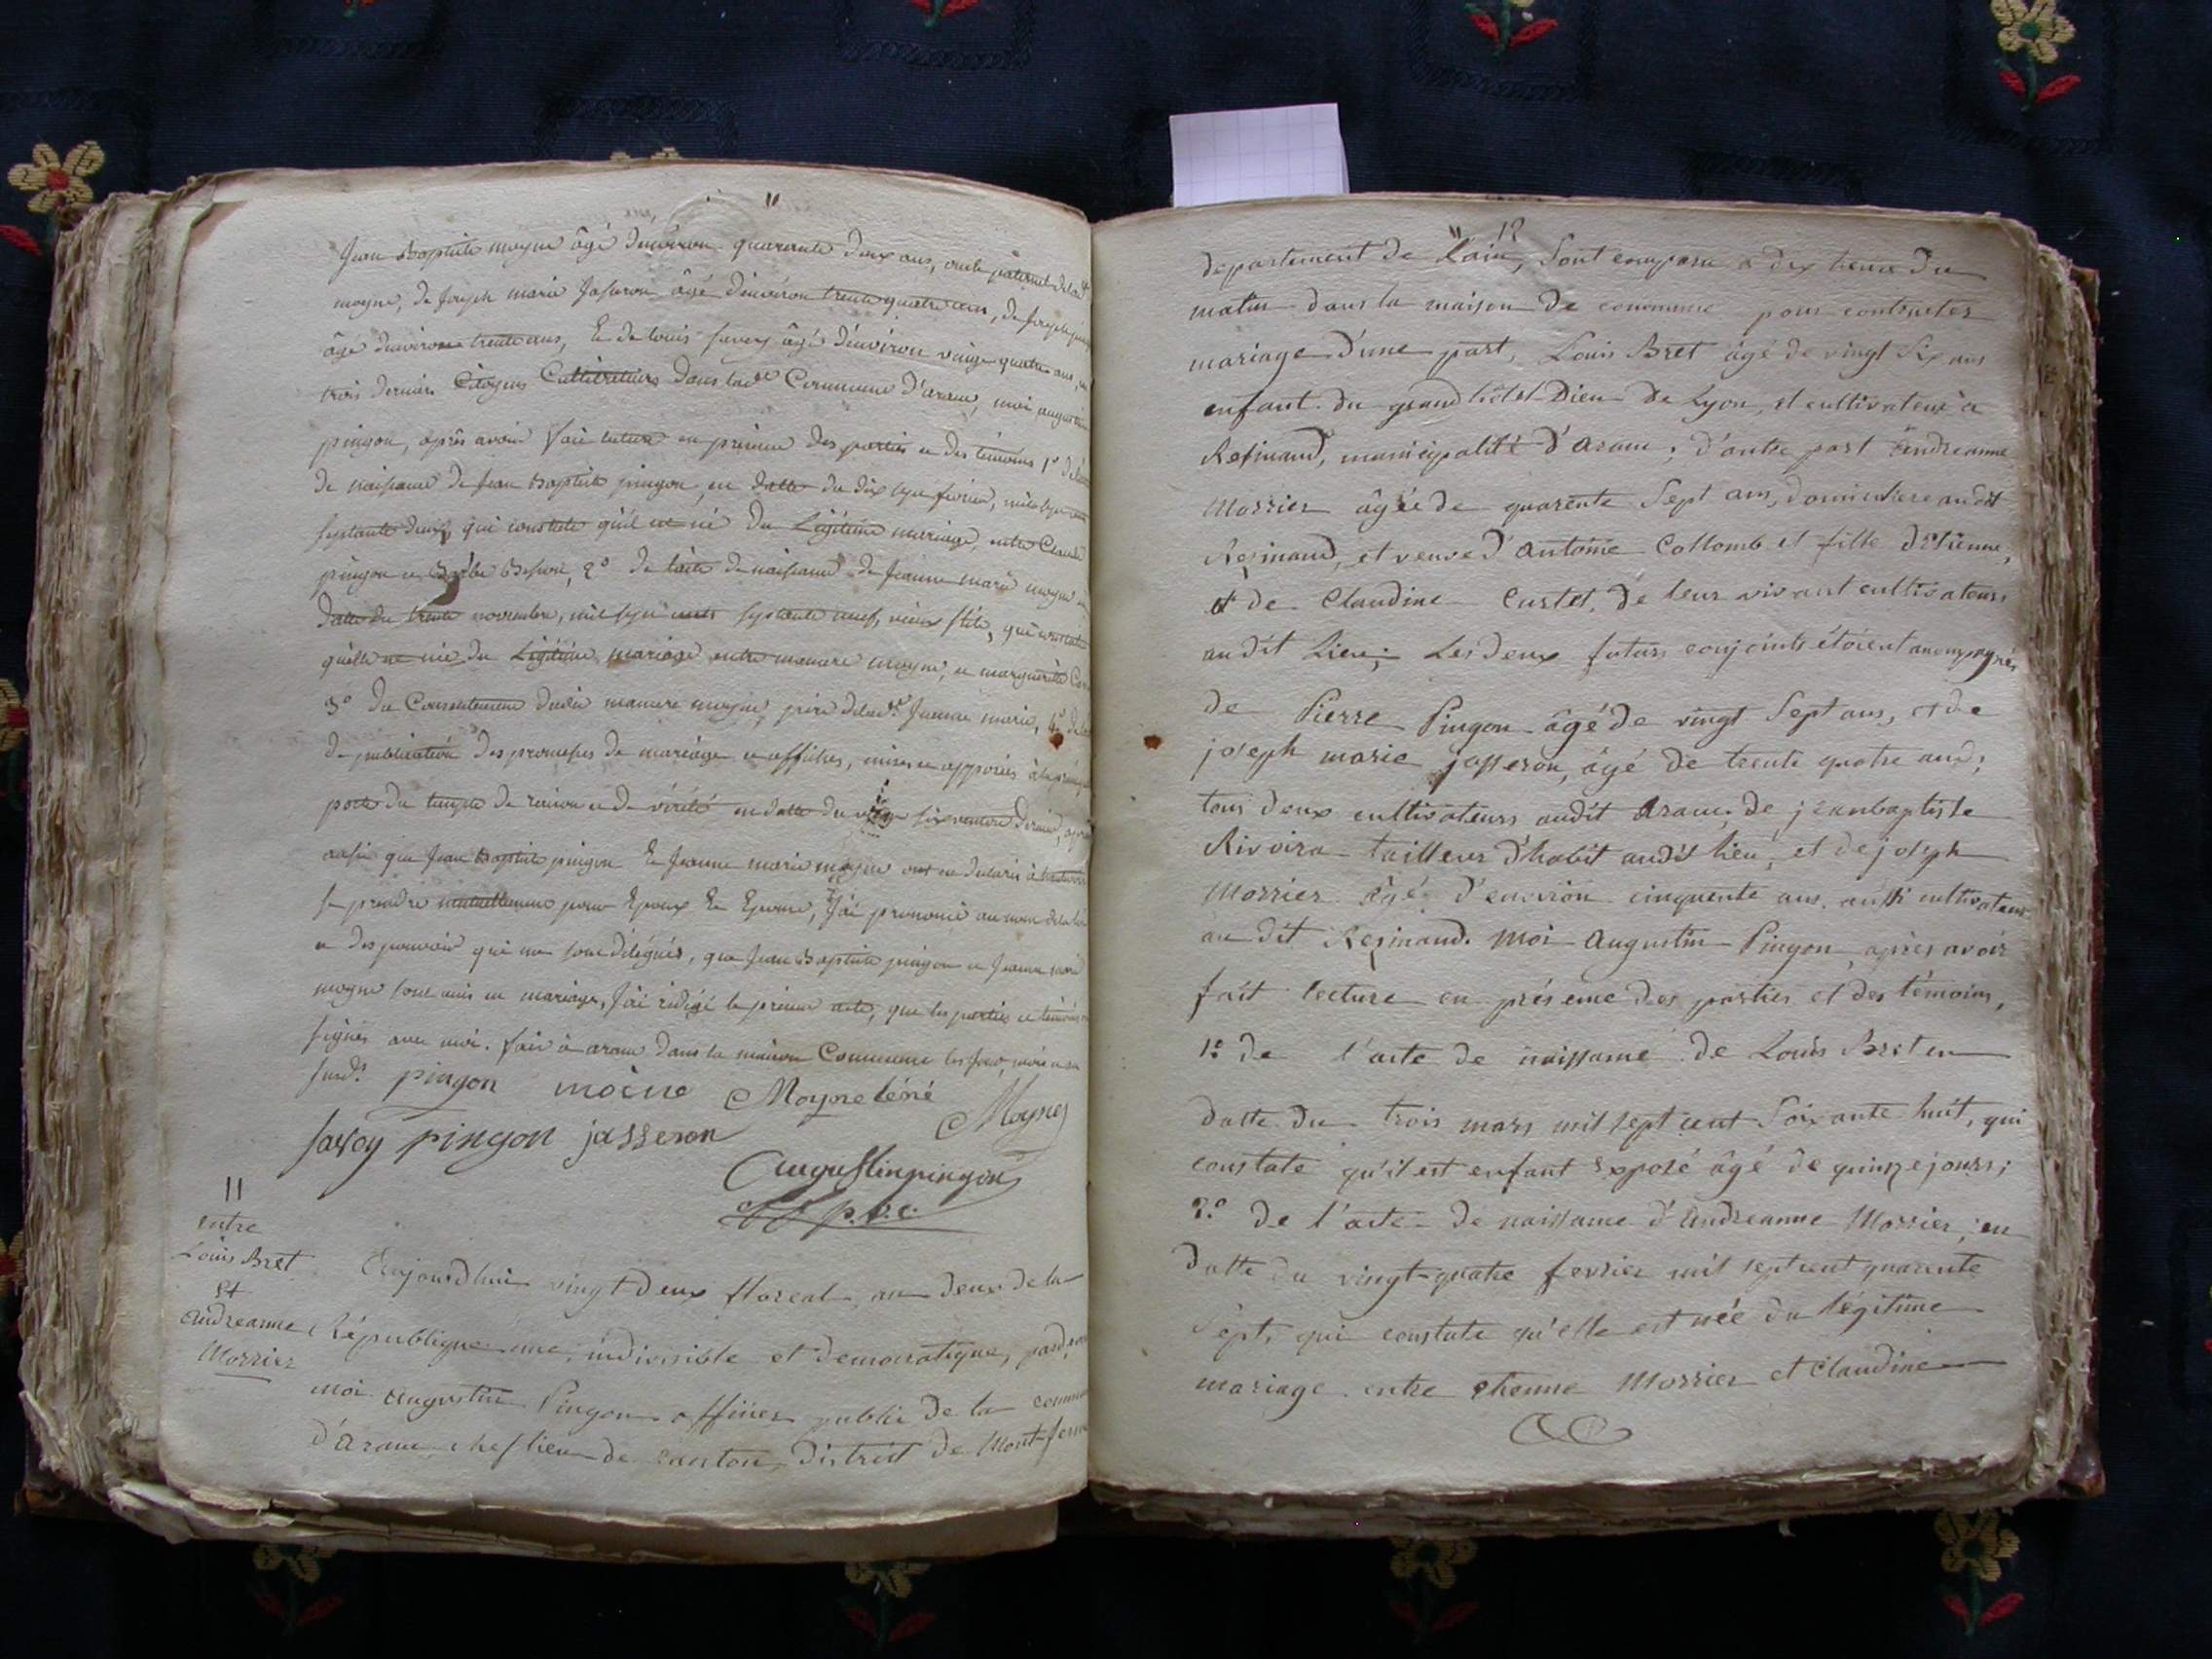 11
Jean Baptiste moyne âgé denviron quarante deux ans, oncle paternel de lad.
moyne, de Joseph marie Jasseron âgé denviron trente quatre ans, de Joseph
âgé denviron trente ans, Et de louis savoy âgé denviron vingt quatre ans,
trois derniers Citoyens Cultivateurs dans lad.e Commune d'aranc, moi augustin
pingon, après avoir fait lecture en présence des parties et des témoins 1.o
de naissance de Jean Baptiste pingon, en datte du dix sept fevrier, mil sept cent
septante deux, qui constate qu'il est né du Légitime mariage, entre Claude
pingon et Barbe 2.o de l'acte de naissance de Jeanne marie moyne
datte du trente novembre, mil sept cents septante neuf, vieux stile, qui constate
qu'elle est née du Légitime mariage entre moyne, et marguerite
3.o du Consentement dudit moyne, père de lad.e Jeanne marie, 4.o
de publication des promesses de mariage et affiches, mises et apposées
porte du temple de raison et de vérité en datte du
ainsi que Jean Baptiste pingon Et Jeanne marie moyne ont eu declaré à haute voix
se prendre mutuellement pour Epoux Et Epouse, J'ai prononcé au nom de la loi
et des pouvoirs qui me sont délégués, que Jean Baptiste pingon et Jeanne marie
moyne sont unis en mariage, J'ai rédigé le présent acte, que les parties et témoins
signés avec moi. fait à aranc dans la maison Commune les jour, mois et an
susd.s pingon moëne Moyne Moyne
savoy pingon jasseron
augustin pingon
p.o.c.
11
entre
Louis Bret
et
andreanne
Morrier
Aujourdhui vingt deux floreal an deux de la
République une, indivisible et democratique, pard.vant
moi augustin Pingon officier public de la commune
d'aranc chef lieu de canton, district de Mont-ferme
12
departement de l'ain, sont comparu à dix heure du
matin dans la maison de commune pour contracter
mariage d'une part, Louis Bret âgé de vingt six ans
enfant du grand hôtel Dieu de Lyon, et cultivateur à
Resinand, municipalité d'aranc; d'autre part andreanne
Morrier âgée de quarente sept ans, domiciliere audit
Resinand, et veuve d'antoine Collomb et fille d'Etienne,
et de Claudine Curtet, de leur vivant cultivateurs
audit Lieu; Les deux futurs conjoints étoient accompagnés
de Pierre Pingon âgé de vingt sept ans, et de
joseph marie jasseron, âgé de trente quatre ans;
tous deux cultivateurs audit aranc, de jeanbaptiste
Rivoira tailleur d'habit audit lieu, et de joseph
Morrier âgé d'environ cinquente ans, aussi cultivateur
audit Resinand. moi augustin Pingon, après avoir
fait lecture en présence des parties et des témoins,
1.o de l'acte de naissance de Louis Bret en
datte du trois mars mil sept cent soixante huit, qui
constate qu'il est enfant exposé âgé de quinze jours;
2.o de l'acte de naissance d'andreanne Morrier, en
datte du vingt-quatre fevrier mil sept cent quarente
sept, qui constate qu'elle est née du légitime
mariage entre etienne Morrier et Claudine